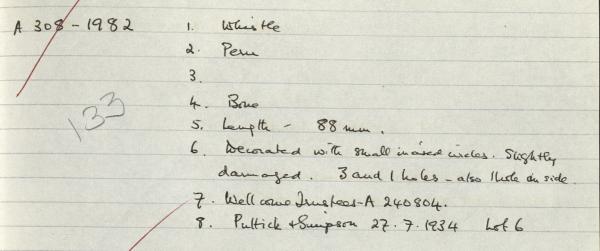 A 308-1982 1. Whistle
2. Peru
3.
133
4. Bone
5. Length - 88 mm.
6. Decorated with small incised circles. Slightly
damaged. 3 and 1 holes - also 1 hole on side.
7. Wellcome Trustees - A 240804.
8. Puttick + Simpson 27.7.1934 Lot 6